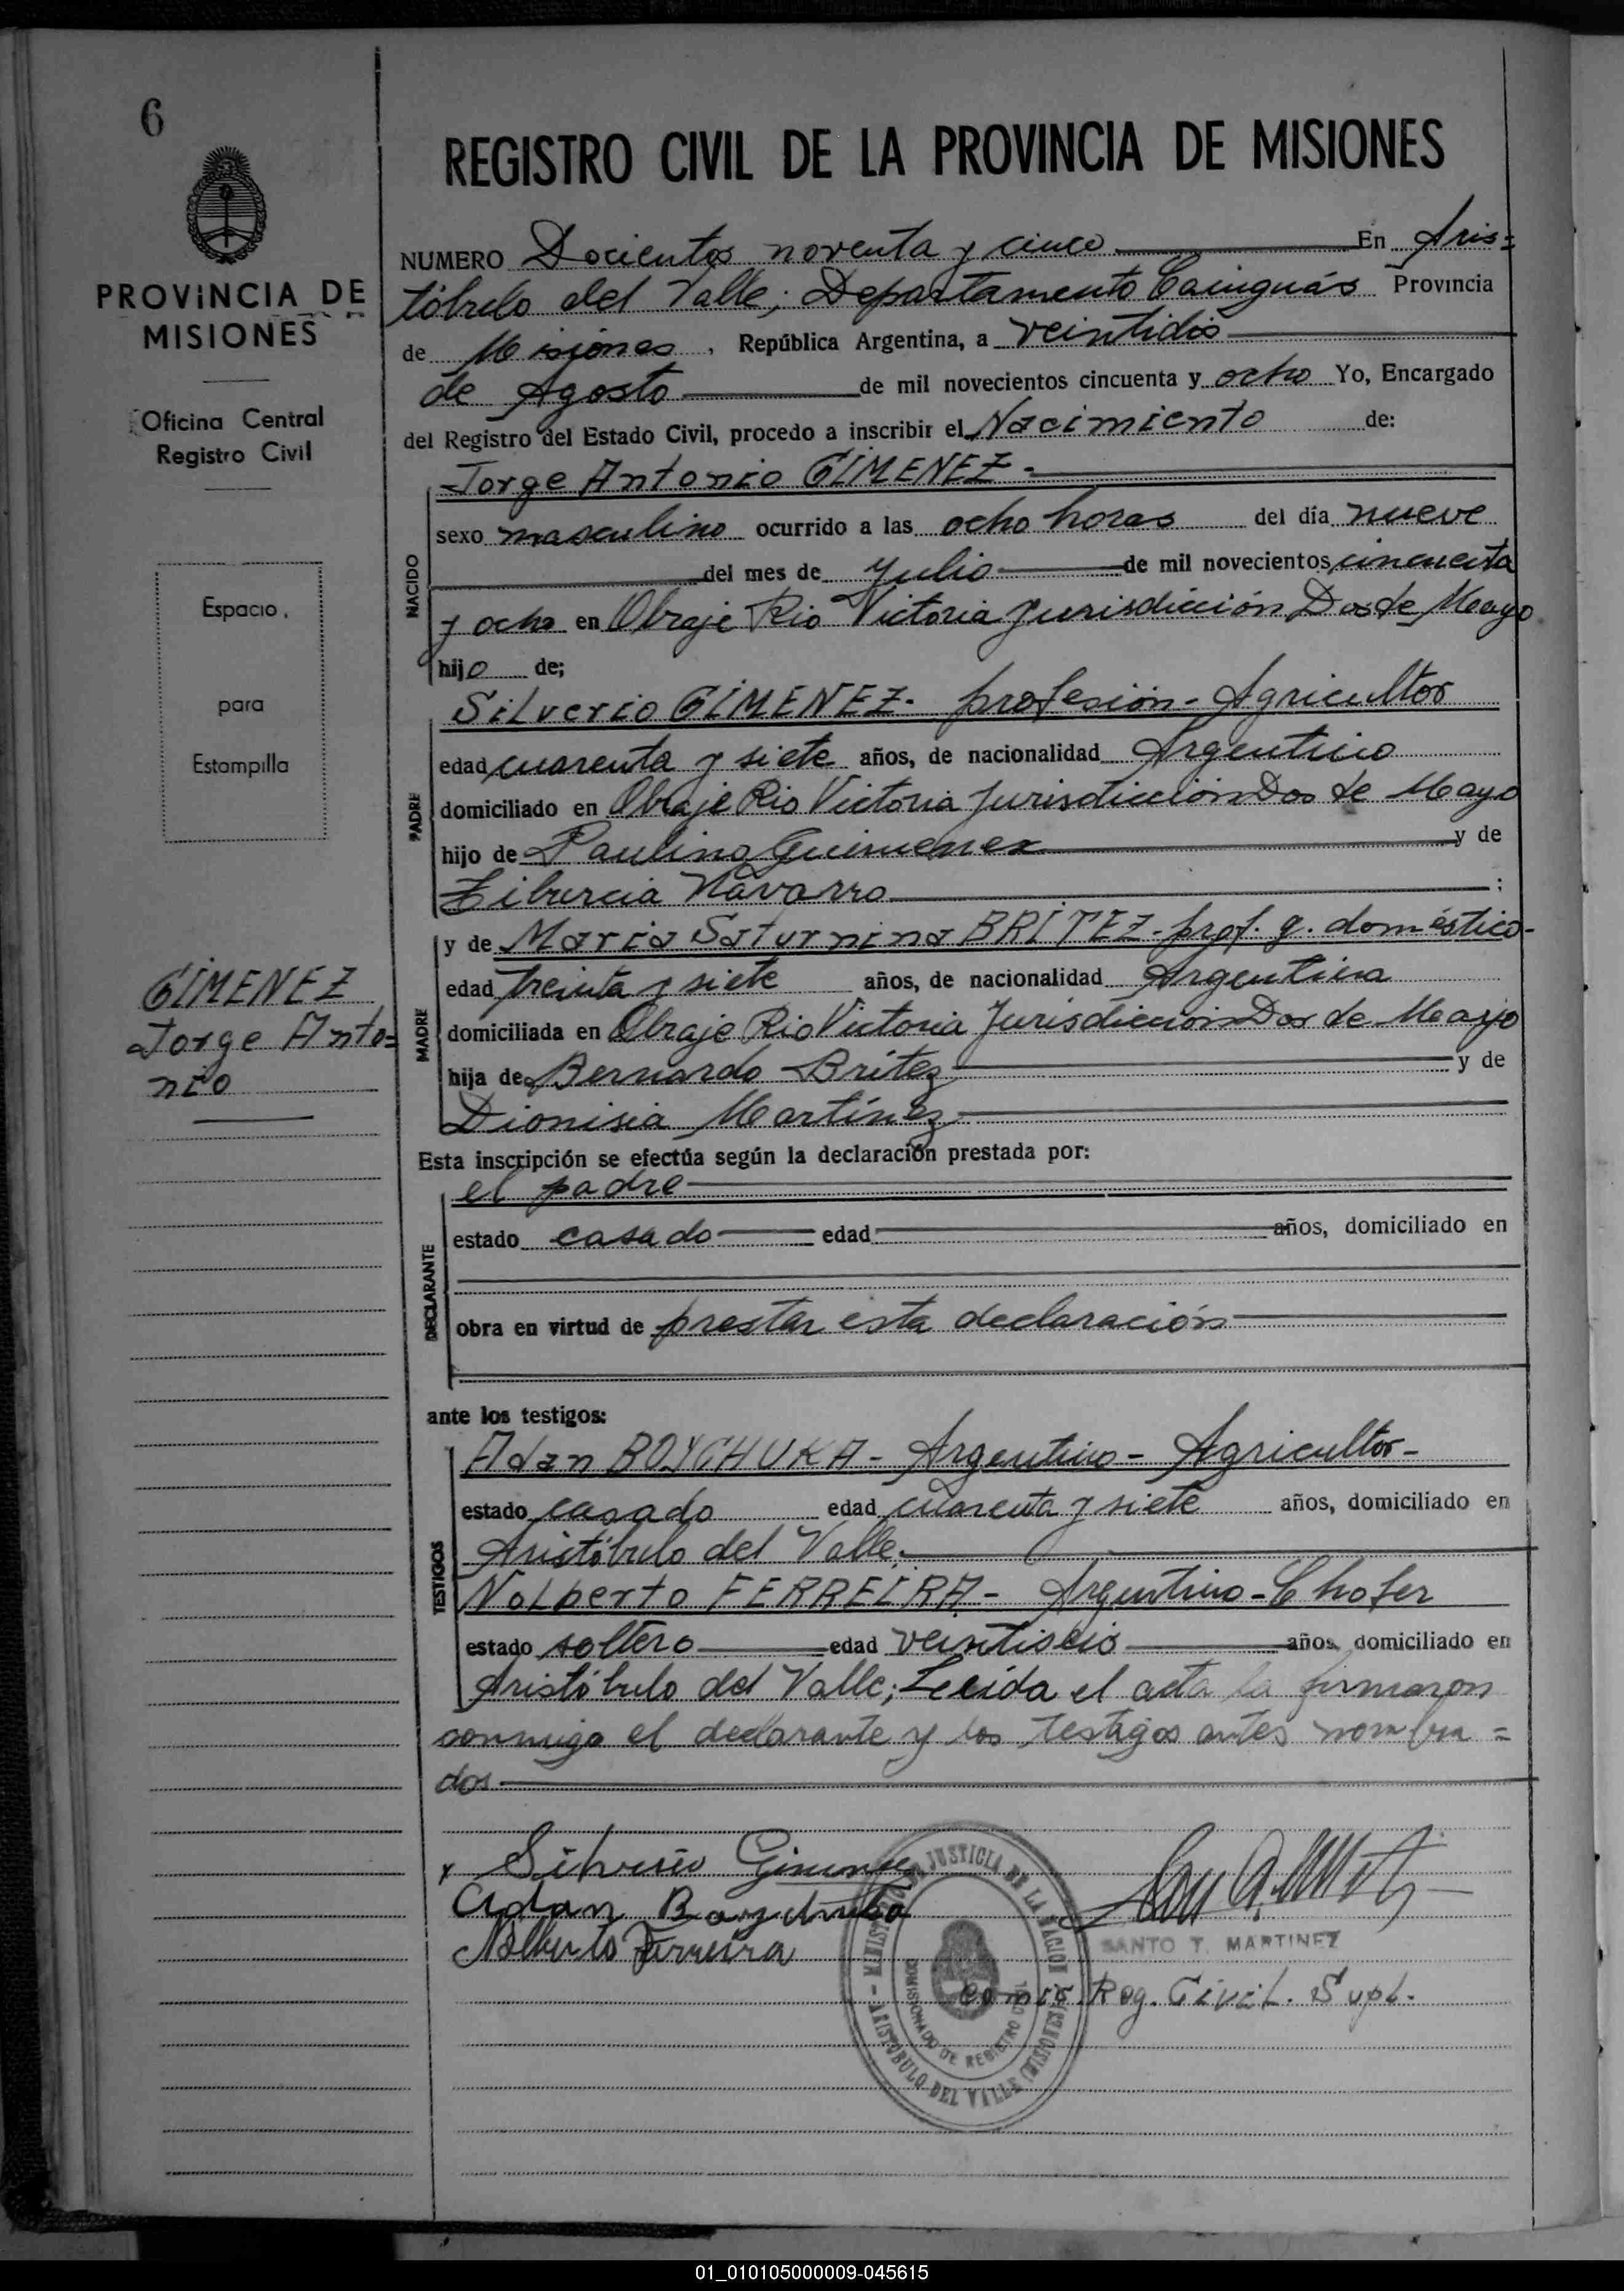 6
PROVINCIA DE
MISIONES
Oficina Central
Registro Civil
Espacio
para
Estampilla
GIMENEZ
Jorge Anto=
nio
REGISTRO CIVIL DE LA PROVINCIA DE MISIONES
NUMERO Docientos noventa y cinco En Aris=
tóbulo del Valle; Departamento Cainguás Provincia
de Misiones, República Argentina, a veintidós
de Agosto de mil novecientos cincuenta y ocho Yo, Encargado
del Registro del Estado Civil, procedo a inscribir el Nacimiento de:
NACIDO
Jorge Antonio GIMENEZ-
sexo masculino ocurrido a las ocho horas del día nueve
del mes de Julio de mil novecientos cincuenta
y ocho en Obraje Rio Victoria Jurisdicción Dos de Mayo
hijo de;
PADRE
Silverio GIMENEZ- profesión- Agricultor
edad cuarenta y siete años, de nacionalidad Argentino
domiciliado en Obraje Rio Victoria Jurisdicción Dos de Mayo
hijo de Paulino Guimenez y de
Tiburcia Navarro ;
MADRE
y de Maria Saturnina BRITEZ- prof. q. doméstico-
edad treinta y siete años, de nacionalidad Argentina
domiciliada en Obraje Rio Victoria Jurisdicción Dos de Mayo
hija de Bernardo Britez y de
Dionisia Martínez
Esta inscripción se efectúa según la declaración prestada por:
DECLARANTE
el padre
estado casado edad años, domiciliado en
obra en virtud de prestar esta declaración
ante los testigos:
TESTIGOS
Adan BOYCHUKA- Argentino- Agricultor-
estado casado edad cuarenta y siete años, domiciliado en
Aristóbulo del Valle.
Nolberto FERREIRA- Argentino- Chofer
estado soltero edad veintiseis años, domiciliado en
Aristóbulo del Valle; Leída el acta la firmaron
conmigo el declarante y los testigos antes nombra=
dos
x Silverio Gimenez
Adan Boychuka
Nolberto Ferreira
MINISTERIO DE JUSTICIA DE LA NACION
COMISIONADO DE REGISTRO CIVIL
- ARISTOBULO DEL VALLE (MISIONES) -
SANTO T. MARTINEZ
Comis. Reg. Civil. Supl.
01_010105000009-045615